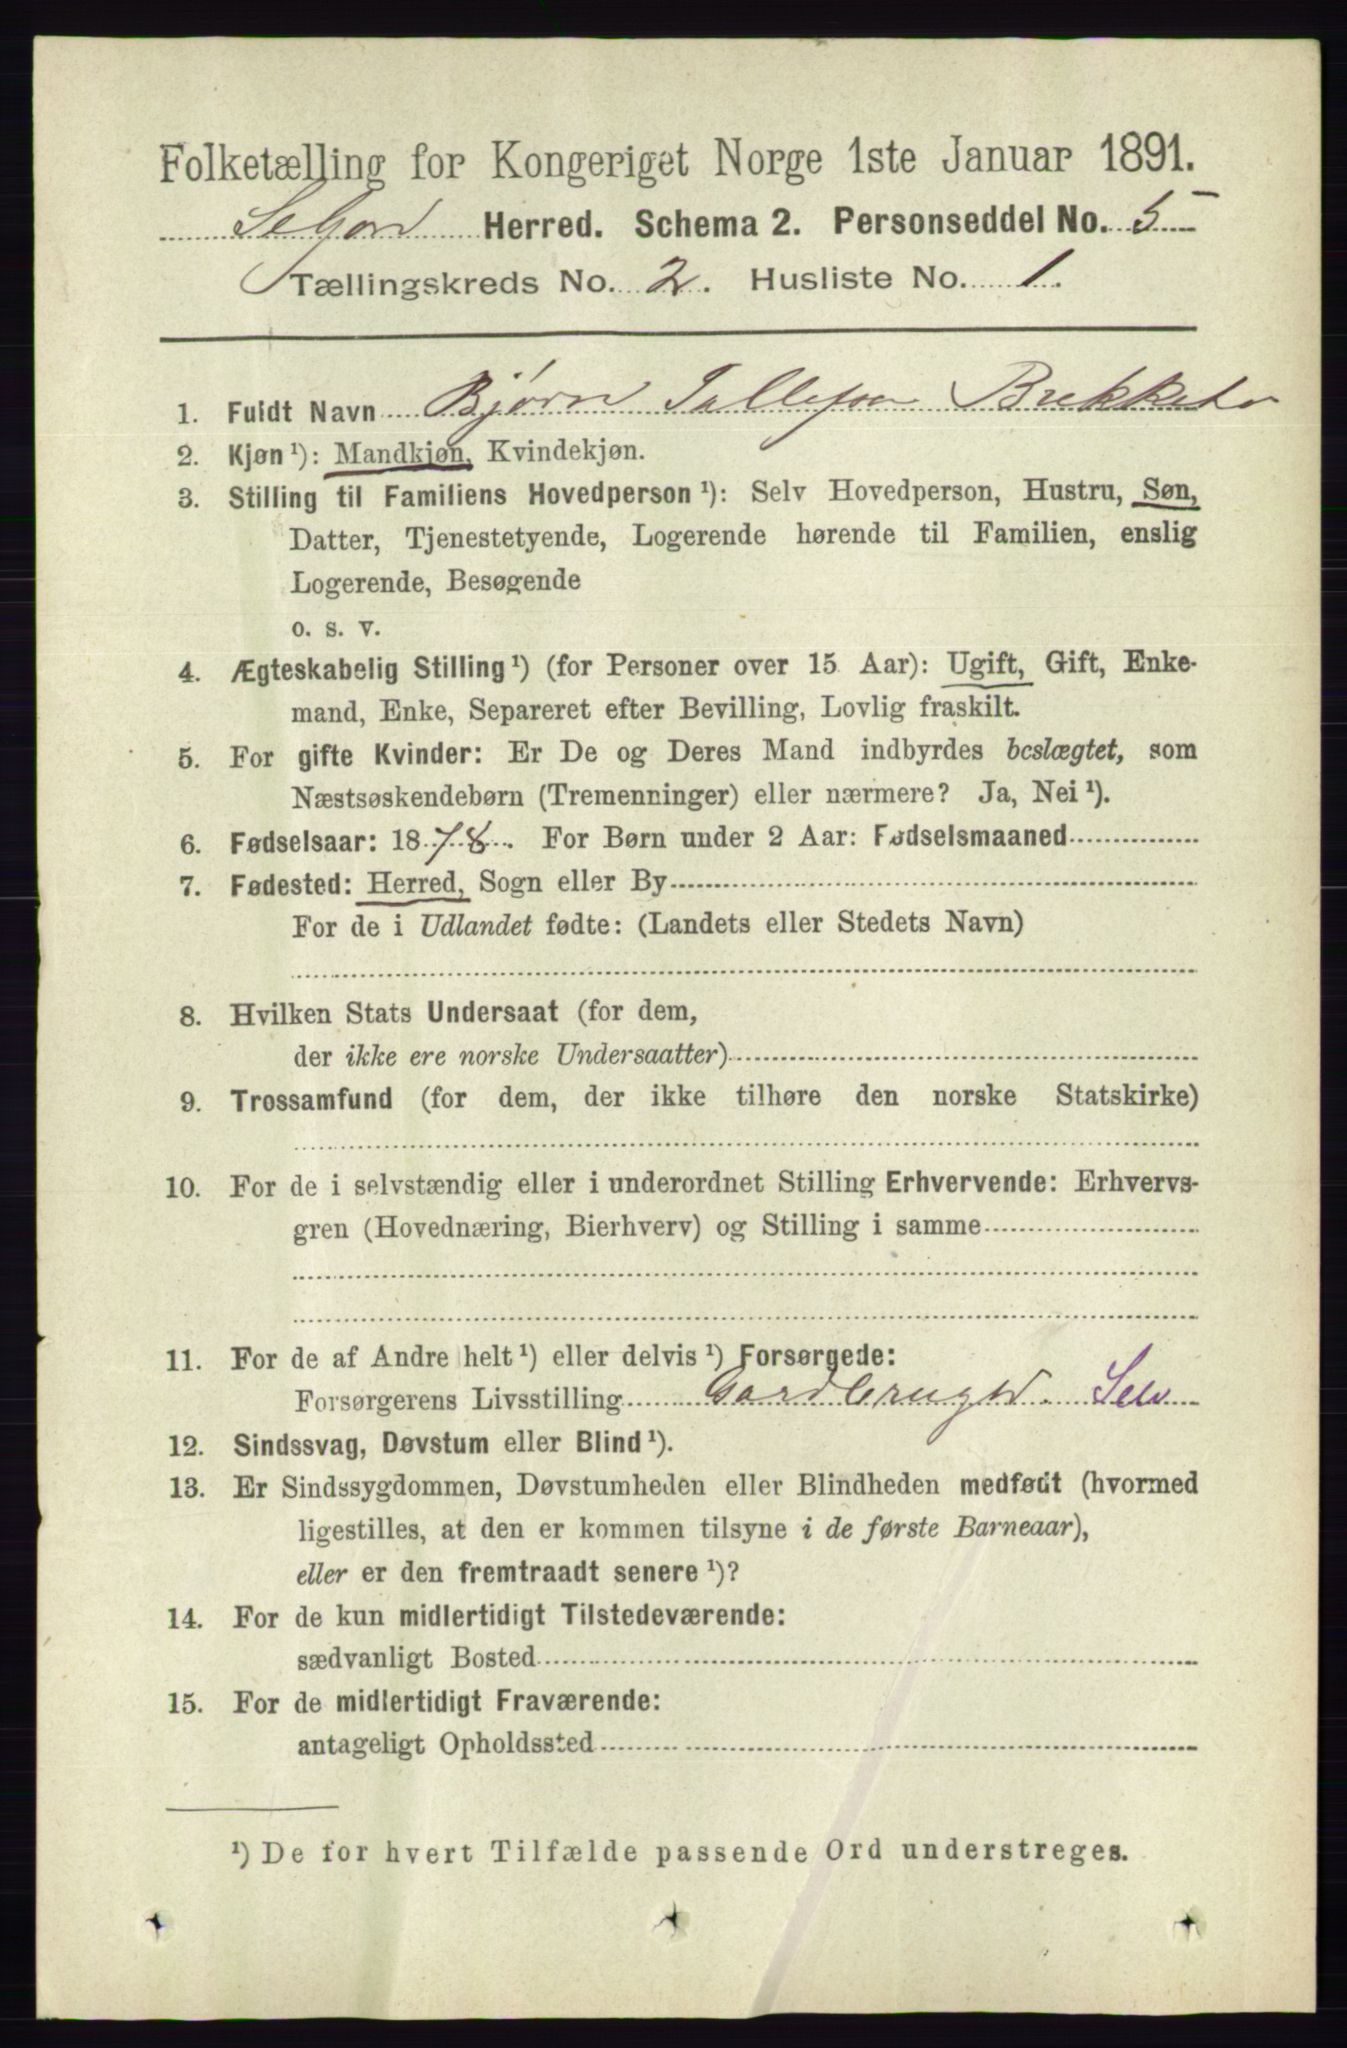 Folketælling for Kongeriget Norge 1ste Januar 1891.
Selgord Herred. Schema 2. Personseddel No. 5
Tællingskreds No. 2. Husliste No. 1.
1. Fuldt Navn Bjørn Tallefsen
2. Kjøn ¹): Mandkjøn, Kvindekjøn.
3. Stilling til Familiens Hovedperson ¹): Selv Hovedperson, Hustru, Søn,
Datter, Tjenestetyende, Logerende hørende til Familien, enslig
Logerende, Besøgende
o. s. v.
4. Ægteskabelig Stilling ¹) (for Personer over 15 Aar): Ugift, Gift, Enke-
mand, Enke, Separeret efter Bevilling, Lovlig fraskilt.
5. For gifte Kvinder: Er De og Deres Mand indbyrdes beslægtet, som
Næstsøskendebørn (Tremenninger) eller nærmere? Ja, Nei ¹).
6. Fødselsaar: 1878. For Børn under 2 Aar: Fødselsmaaned
7. Fødested: Herred, Sogn eller By
For de i Udlandet fødte: (Landets eller Stedets Navn)
8. Hvilken Stats Undersaat (for dem,
der ikke ere norske Undersaatter)
9. Trossamfund (for dem, der ikke tilhøre den norske Statskirke)
10. For de i selvstændig eller i underordnet Stilling Erhvervende: Erhvervs-
gren (Hovednæring, Bierhverv) og Stilling i samme
11. For de af Andre helt ¹) eller delvis ¹) Forsørgede:
Forsørgerens Livsstilling Gardbruger. Selv
12. Sindssvag, Døvstum eller Blind ¹).
13. Er Sindssygdommen, Døvstumheden eller Blindheden medfødt (hvormed
ligestilles, at den er kommen tilsyne i de første Barneaar),
eller er den fremtraadt senere ¹)?
14. For de kun midlertidigt Tilstedeværende:
sædvanligt Bosted
15. For de midlertidigt Fraværende:
antageligt Opholdssted
¹) De for hvert Tilfælde passende Ord understreges.